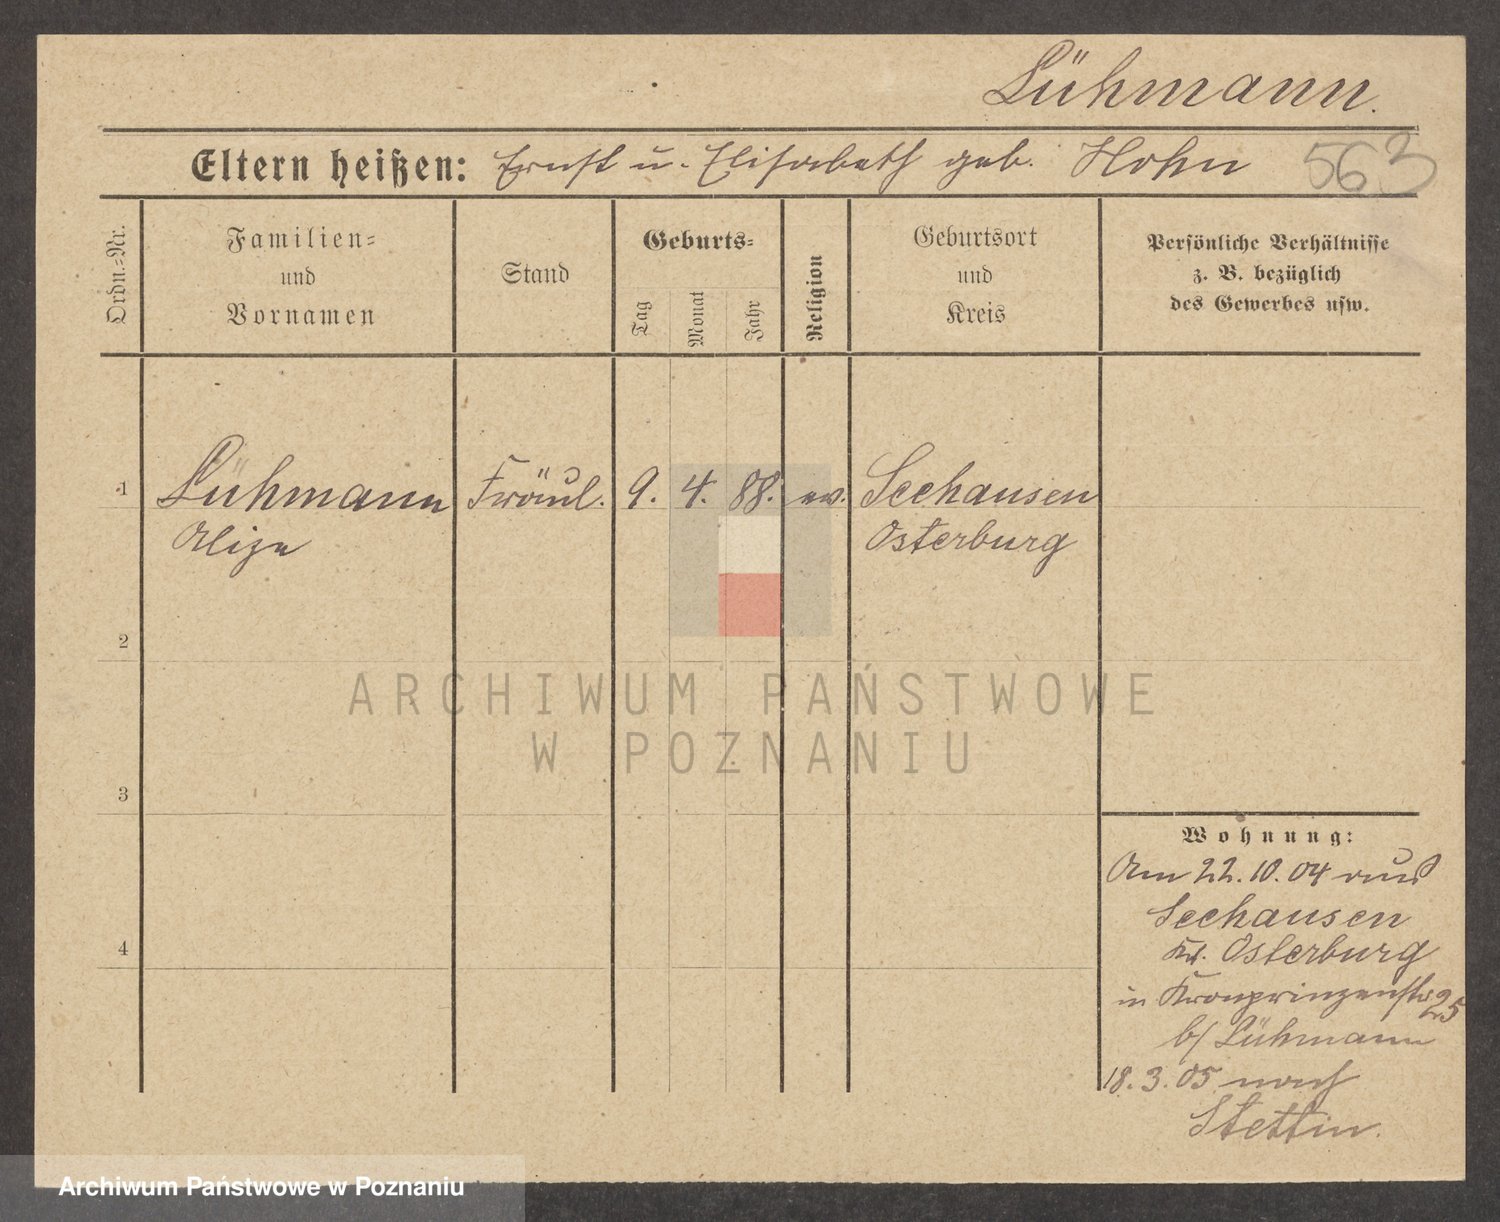 Lühmann.
Eltern heißen: Ernst u. Elisabeth geb. Hohn 563
Ordn.-Nr.
Familien-
und
Vornamen
Stand
Geburts-
Tag
Monat
Jahr
Religion
Geburtsort
und
Kreis
Persönliche Verhältnisse
z. B. bezüglich
des Gewerbes usw.
1 Lühmann Fräul. 9. 4. 88. ev. Seehausen
Alize Osterburg
2
3
4
Wohnung:
Am 22.10.04 aus
Seehausen
Kr. Osterburg
in Kronprinzenstr 25
b/ Lühmann
18.3.05 nach
Stettin.
ARCHIWUM PAŃSTWOWE
W POZNANIU
Archiwum Państwowe w Poznaniu